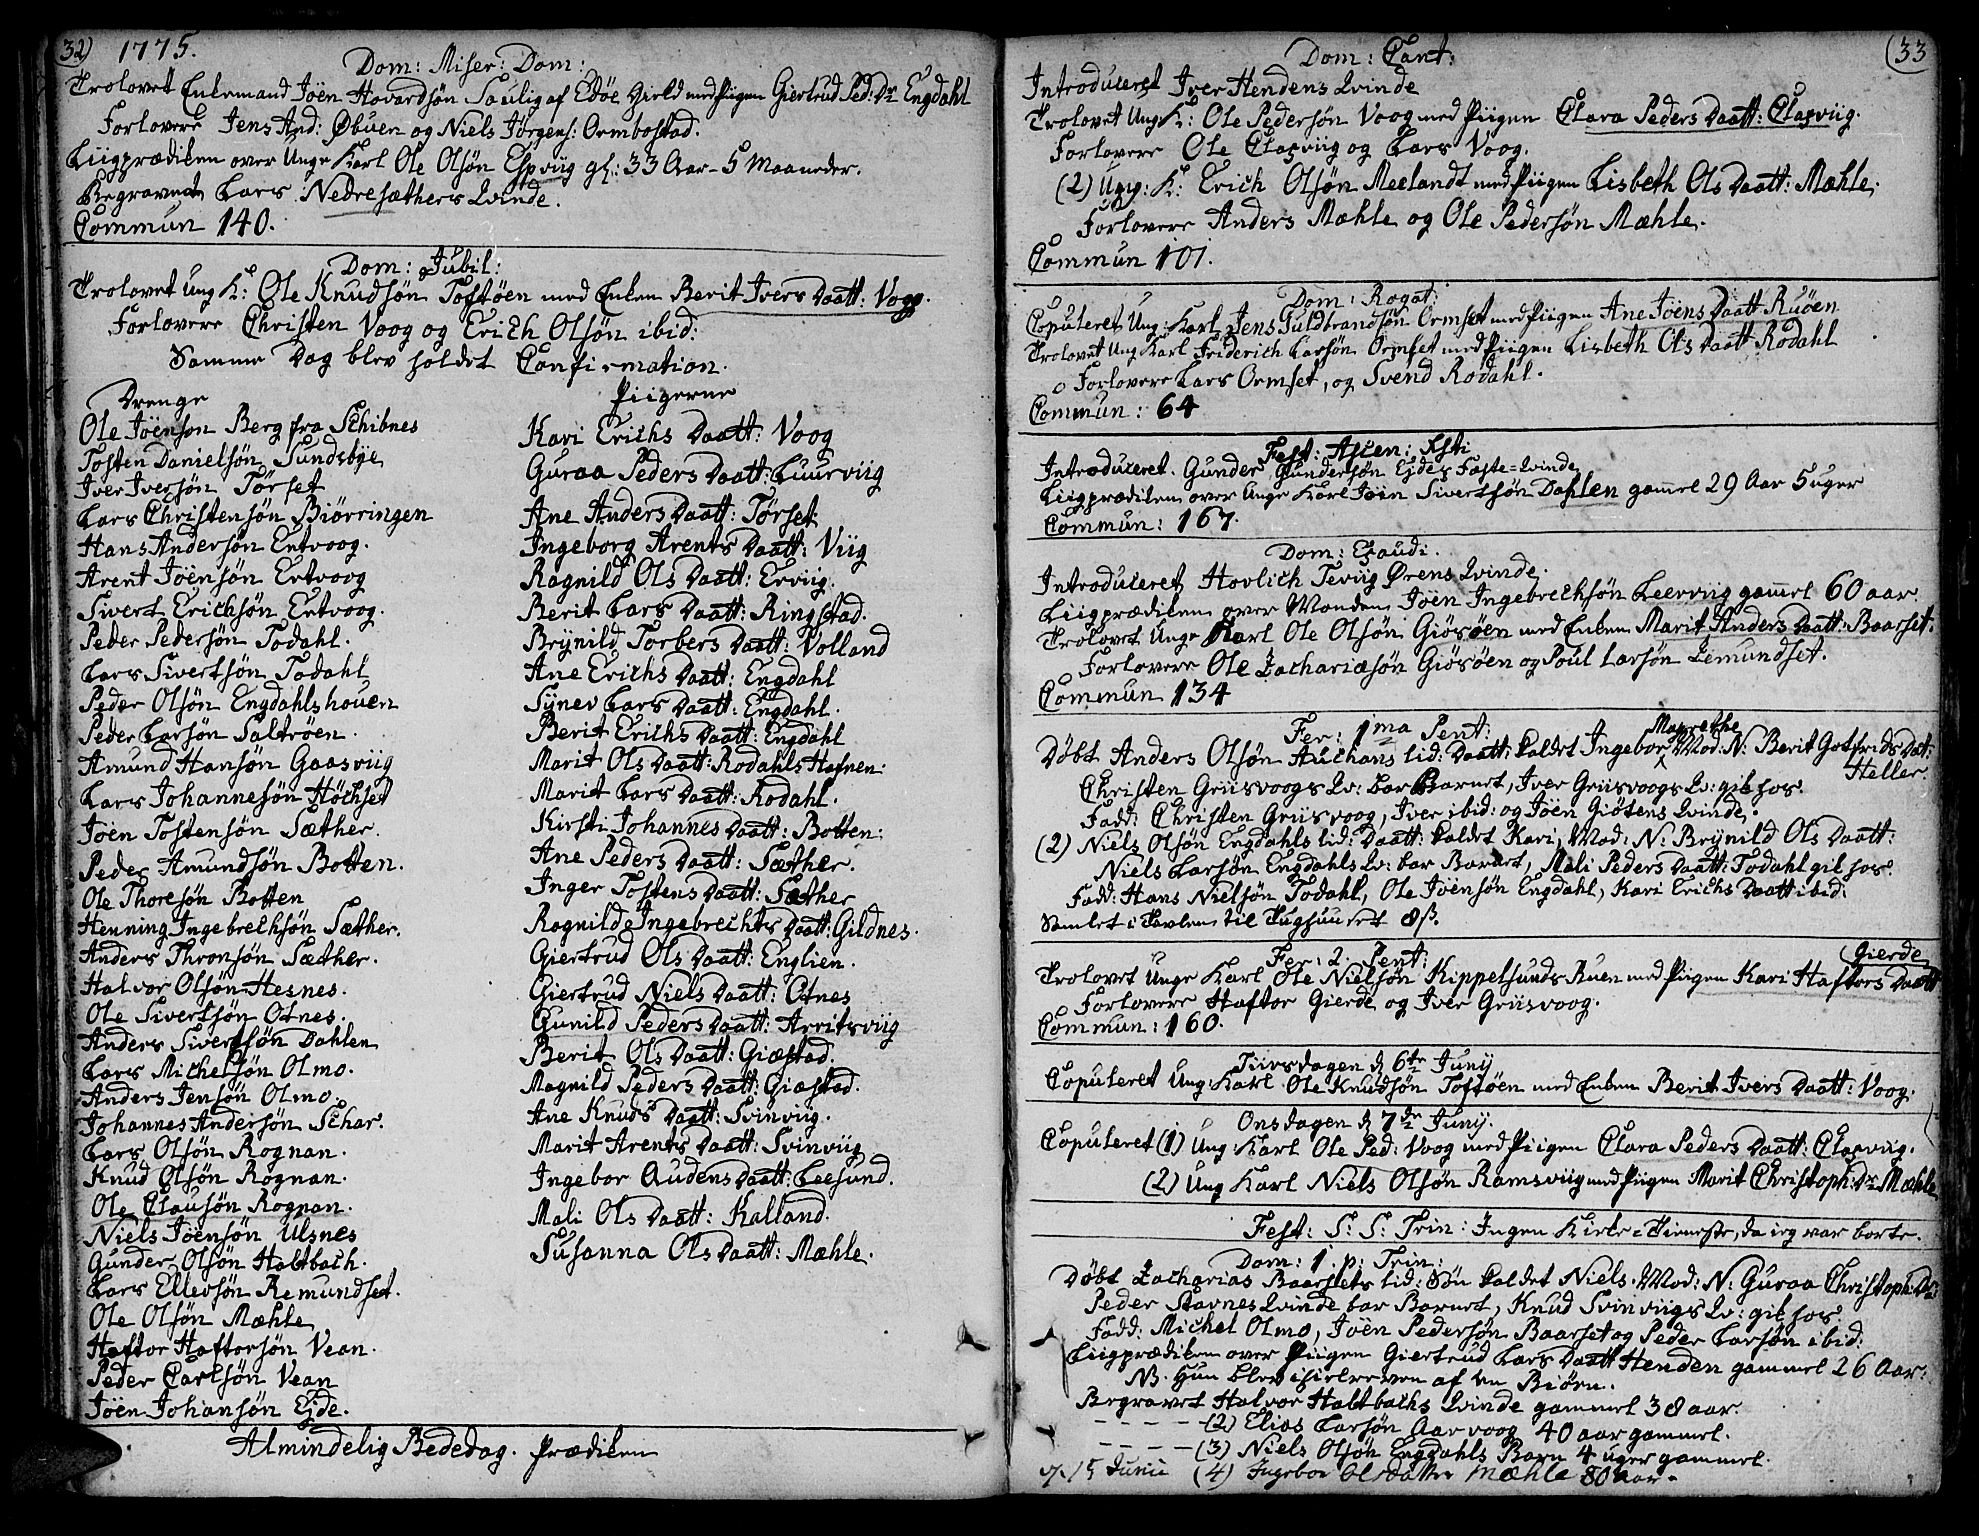 32) 1775.
Dom: Miser: Dom:
Trolovet Enkemand Jöen Hovardsön Saulig af Edöe Gield med Piigen Giertrud Ped: Dr Engdahl
Forlovere Jens And: Øbuen og Niels Jörgens: Ormbostad.
Liigprædiken over Unge Karl Ole Olsön Espviig gl: 33 Aar - 5 Maaneder.
Begravet Lars Nedresæthers Qvinde.
Commun 140.
Dom: Jubil:
Trolovet Ung K: Ole Knudsön Toftöen med Enken Berit Ivers Daatt: Vogg.
Forlovere Christen Voog og Erich Olsön ibid:
Samme Dag blev holdet Confirmation.
Drenge
Ole Jöenson Berg fra Schibnes
Tosten Danielsön Sundsbye
Iver Iversön Törset
Lars Christensön Biörringen
Hans Andersön Ertvoog.
Arent Jöensön Ertvoog
Sivert Erichsön Ertvoog.
Peder Pedersön Todahl.
Lars Sivertsön Todahl
Peder Olsön Engdahlshouen
Peder Larsön Saltröen.
Amund Hansön Gaasviig
Lars Johannesön Höchset
Jöen Tostensön Sæther.
Peder Amundsön Botten.
Ole Thoresön Botten
Henning Ingebrechsön Sæther.
Anders Thronsön Sæther.
Halvor Olsön Hesnes.
Ole Sivertsön Otnes.
Anders Sivertsön Dahlen
Lars Michelsön Olmo.
Anders Jensön Olmo.
Johannes Andersön Schar.
Lars Olsön Rognan.
Knud Olsön Rognan.
Ole Clausön Rognan.
Niels Jöensön Ulsnes
Gunder Olsön Haltbach.
Lars Ellevsön Remundset.
Ole Olsön Mæhle
Haftor Haftorsön Vean.
Peder Carlsön Vean
Jöen Johansön Ejde.
Piigerne
Kari Erichs Daatt: Voog
Guraa Peders Daatt: Luurviig
Ane Anders Daatt: Törset
Ingeborg Arents Daatt: Viig
Ragnild Ols Daatt: Erviig.
Berit Lars Daatt: Ringstad.
Brynild Torbers Daatt: Volland
Ane Erichs Daatt: Engdahl
Synev Lars Daatt: Engdahl.
Berit Erichs Daatt: Engdahl
Marit Ols Daatt: Rodahls Hafnen:
Marit Lars Daatt: Rodahl.
Kirsti Johannes Daatt: Botten:
Ane Peders Daatt: Sæther.
Inger Tostens Daatt: Sæther
Ragnild Ingebrechts Daatt: Gildnes.
Giertrud Ols Daatt: Englien.
Giertrud Niels Daatt: Otnes
Gunild Peders Daatt: Arritsviig
Berit Ols Daatt: Giæstad.
Magnild Peders Daatt: Giæstad.
Ane Knuds Daatt: Svinviig.
Marit Arents Daatt: Svinviig
Ingebor Audens Daatt: Leesund.
Mali Ols Daatt: Kalland.
Susanna Ols Daatt: Mæhle.
Almindelig Bededag. Prædiken
33
Dom: Cant:
Introduceret Iver Hendens Qvinde
Trolovet Ung K: Ole Pedersön Voog med Piigen Clara Peders Daatt: Clasviig.
Forlovere Ole Clasviig og Lars Voog.
(2) Ung: K: Erich Olsön Meelandt med Piigen Lisbeth Ols Daatt: Mæhle.
Forlovere Anders Mæhle og Ole Pedersön Mæhle.
Commun 101.
Dom: Rogat:
Copuleret Ung: Karl Jens Guldbrandsön Ormset med Piigen Ane Jöens Daatt Ruöen
Trolovet Ung Karl Friderich Larsön Ormset med Piigen Lisbeth Ols Daatt Rodahl
Forlovere Lars Ormset, og Svend Rodahl.
Commun: 64
Fest: Ascen: Xsti
Introduceret. Gunder Gundersön Ejdes Fæste-Qvinde
Liigprædiken over Unge Karl Jöen Sivertsön Dahlen gamel 29 Aar 5 uger
Commun: 167.
Dom: Exaudi.
Introduceret Hovlich Teviig Ørens Qvinde.
Liigprædiken over Manden Jöen Ingebrechsön Leerviig gammel 60 aar
Trolovet Unge Karl Ole Olsön Giösöen med Enken Marit Anders Daatt: Baarset.
Forlovere Ole Zachariasön Giösöen og Poul Larsön Lemundset.
Commun 134
Fer: 1ma Pent:
Døbt Anders Olsön Auchans lid: Daatt: kaldet Ingebor Magrethe Mod: N: Berit Gotfrids Dat: Heller
Christen Griisvoogs Qv: bar Barnet, Iver Griisvoogs Qv: gik hos.
Fadd: Christen Griisvoog, Iver ibid: og Jöen Giötens Qvinde.
(2) Niels Olsön Engdahls lid: Daatt: kaldet Kari, Mod: N: Brynild Ols Daatt:
Niels Larsön Engdahls Qv: bar Barnet, Mali Peders Daatt: Todahl gik hos.
Fadd: Hans Nielsön Todahl, Ole Jöensön Engdahl, Kari Erichs Daatt ibid:
Samlet i Tavlen til Tughuuset 8ß.
Fer: 2. Pent:
Trolovet Unge Karl Ole Nielsön Kippelsunds Ruen med Piigen Kari Haftors Daatt Gierde
Forlovere Haftor Gierde og Iver Griisvoog.
Commun: 160.
Tiirsdagen d 6te Juny
Copuleret Ung: Karl Ole Knudsön Toftöen med Enken Berit Ivers Daatt: Voog.
Onsdagen d 7de Juny.
Copuleret (1) Ung Karl Ole Ped: Voog med Piigen Clara Peders Daatt: Clasviig.
(2) Ung Karl Niels Olsön Ramsviig med Piigen Marit Christoph: Dr Mæhle
Fest: S: S: Trin: Ingen Kirke-Tieneste, da ieg var borte.
Dom: 1. p: Trin:
Døbt Zacharias Baarsets lid: Sön kaldet Niels. Mod: N: Guraa Christoph: Dr
Peder Stavnes Qvinde bar Barnet, Knud Svinviigs Qv: gik hos.
Fadd: Michel Olmo, Jöen Pedersön Baarset og Peder Larsön ibid:
Liigprædiken over Piigen Giertrud Lars Daatt Henden gammel 26 Aar:
NB. Hun blev ihielreven af en Biörn.
Begravet Halvor Haltbachs Qvinde gammel 38 aar.
- - - - (2) Elias Larsön Aarvoog 40 aar gammel.
- - - - (3) Niels Olsön Engdahls Barn 4 uger gammel.
15 Junii (4) Ingebor Olsdatter Mæhle 80 aar.